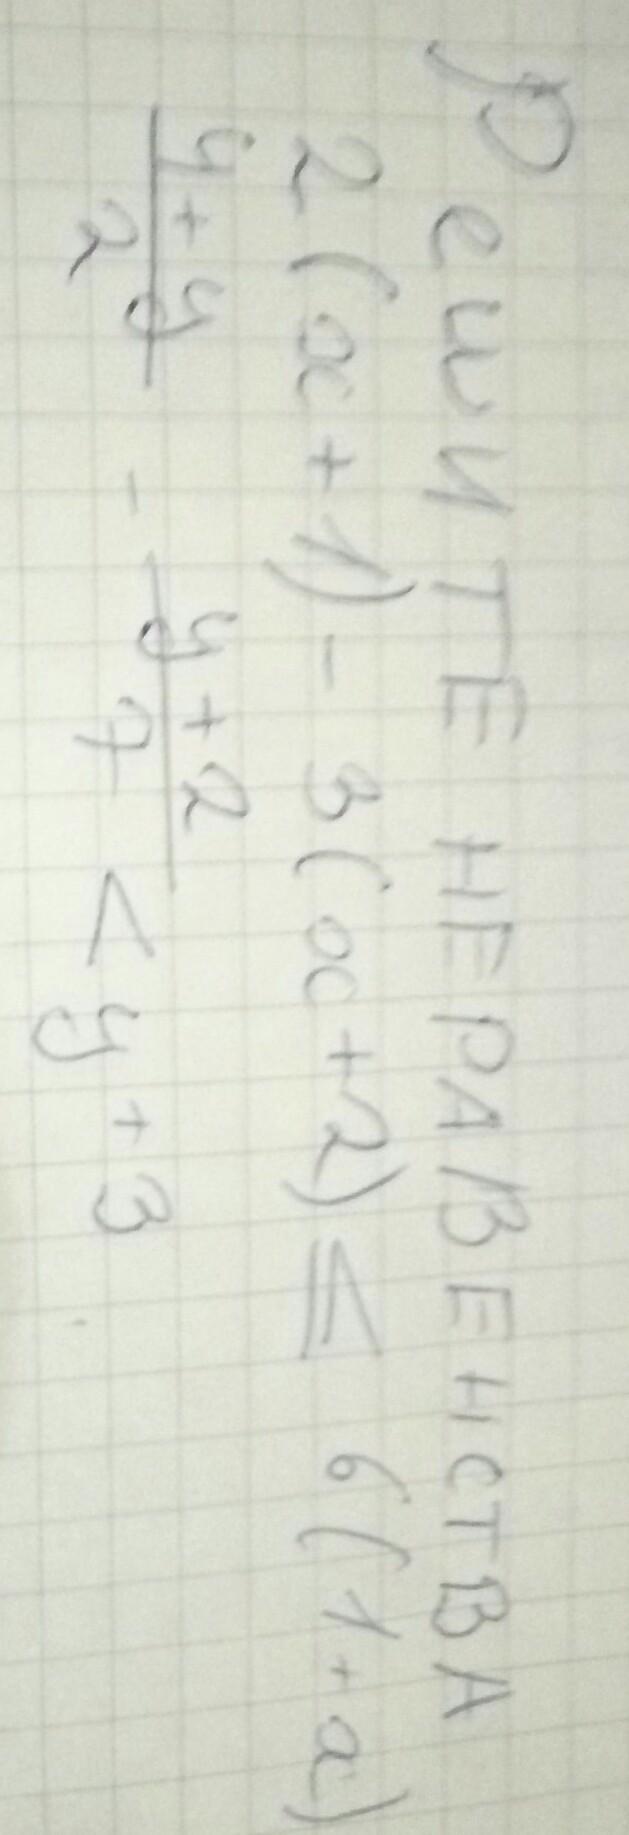 Решите неравенства
2(x+1)-3(x+2) ≤ 6(1+a)
4+y/2 - y+2/7 < y+3